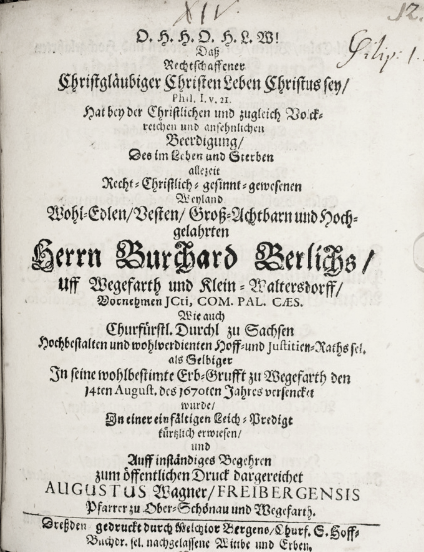 XIV.
12.
Filip: 1.
O. H. H. O. H. L. W!
Daß
Rechtschaffener
Christgläubiger Christen Leben Christus sey/
Phil. I. v. 21.
Hat bey der Christlichen und zugleich Volck-
reichen und ansehnlichen
Beerdigung/
Des im Leben und Sterben
allezeit
Recht-Christlich-gesinnt-gewesenen
Weyland
Wohl-Edlen/Vesten/Groß-Achtbarn und Hoch-
gelahrten
Herrn Burchard Berlichs/
Uff Wegefarth und Klein-Waltersdorff/
Vornehmen JCti, COM. PAL. CÆS.
Wie auch
Churfürstl. Durchl zu Sachsen
Hochbestalten und wohlverdienten Hoff-und Justitien-Raths sel.
als Selbiger
In seine wohlbestimte Erb-Grufft zu Wegefarth den
14ten August. des 1670ten Jahres versencket
wurde/
In einer einfältigen Leich-Predigt
kürtzlich erwiesen/
und
Auff inständiges Begehren
zum öffentlichen Druck dargereichet
AUGUSTUS Wagner/FREIBERGENSIS
Pfarrer zu Ober-Schönau und Wegefarth.
Dreßden gedruckt durch Melchior Bergens/Churf. S. Hoff-
Buchdr. sel. nachgelassene Wittbe und Erben.